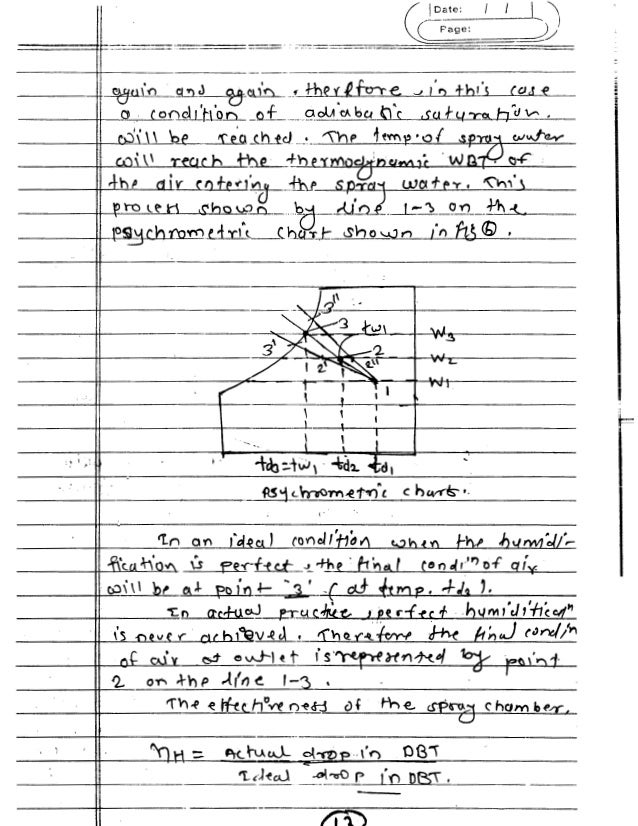 Date: / /
Page:
again and again, therefore, in this case
a condition of adiabatic saturation.
will be reached. The temp. of spray water
will reach the thermodynamic WBT of
the air entering the spray water. This
process shown by line 1-3 on the
psychrometric chart shown in fig ⑥.
3"
3
tw1
W3
3'
2
W2
2'
2"
1
W1
td3=tw1 td2 td1
Psychrometric chart.
In an ideal condition when the humidi-
fication is perfect, the final condin of air
will be at point '3' (at temp. td3).
In actual practice, perfect humidifican
is never achieved. Therefore the final condin
of air at outlet is represented by point
2 on the line 1-3.
The effectiveness of the spray chamber,
ηH = Actual drop in DBT
Ideal drop in DBT.